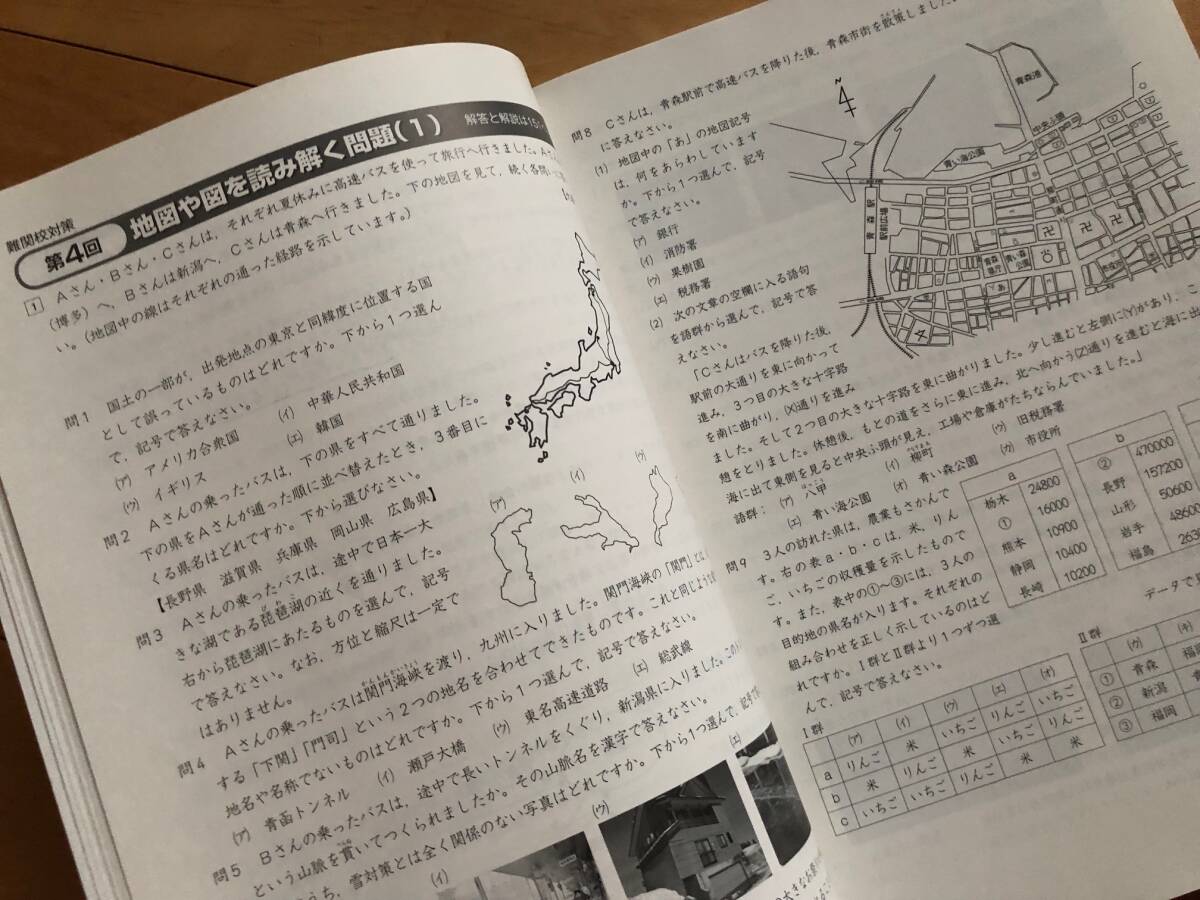 難関校対策
第4回
地図や図を読み解く問題(1)
解答と解説は15
1 Aさん・Bさん・Cさんは、それぞれ夏休みに高速バスを使って旅行へ行きました。
(博多)へ、Bさんは新潟へ、Cさんは青森へ行きました。下の地図を見て、続く各問
い。(地図中の線はそれぞれの通った経路を示しています。)
問1 国土の一部が、出発地点の東京と同緯度に位置する国
として誤っているものはどれですか。下から1つ選ん
で、記号で答えなさい。
(ア) アメリカ合衆国 (イ) 中華人民共和国
(ウ) イギリス (エ) 韓国
問2 Aさんの乗ったバスは、下の県をすべて通りました。
下の県をAさんが通った順に並べ替えたとき、3番目に
くる県名はどれですか。下から選びなさい。
【長野県 滋賀県 兵庫県 岡山県 広島県】
問3 Aさんの乗ったバスは、途中で日本一大
きな湖である琵琶湖の近くを通りました。
右から琵琶湖にあたるものを選んで、記号
で答えなさい。なお、方位と縮尺は一定で
はありません。
(ア)
(イ)
(ウ)
問4 Aさんの乗ったバスは関門海峡を渡り、九州に入りました。関門海峡の「関門」とは、
する「下関」「門司」という2つの地名を合わせてできたものです。これと同じような
地名や名称でないものはどれですか。下から1つ選んで、記号で答えなさい。
(ア) 青函トンネル (イ) 瀬戸大橋 (ウ) 東名高速道路 (エ) 総武線
問5 Bさんの乗ったバスは、途中で長いトンネルをくぐり、新潟県に入りました。
という山脈を貫いてつくられましたか。その山脈名を漢字で答えなさい。
うち、雪対策とは全く関係のない写真はどれですか。下から1つ選んで、記号で
(イ)
(ウ)
(エ)
問8 Cさんは、青森駅前で高速バスを降りた後、青森市街を散策しました。
に答えなさい。
(1) 地図中の「あ」の地図記号
は、何をあらわしています
か。下から1つ選んで、記号
で答えなさい。
(ア) 銀行
(イ) 消防署
(ウ) 果樹園
(エ) 税務署
(2) 次の文章の空欄に入る語句
を語群から選んで、記号で答
えなさい。
「Cさんはバスを降りた後、
駅前の大通りを東に向かって
進み、3つ目の大きな十字路
を南に曲がり、(X)通りを進み
ました。そして2つ目の大きな十字路を東に曲がりました。少し進むと左側に(Y)があり、こ
憩をとりました。休憩後、もとの道をさらに東に進み、北へ向かう(Z)通りを進むと海に出
海に出て東側を見ると中央ふ頭が見え、工場や倉庫がたちならんでいました。」
語群：(ア) 八甲 (イ) 柳町 (ウ) 旧税務署
(エ) 青い海公園 (オ) 青い森公園 (カ) 市役所
青森港
中央ふ頭
青い海公園
青森駅
駅前広場
青森県庁
青い森公園
市役所
あ
問9 3人の訪れた県は、農業もさかんで
す。右の表a・b・cは、米、りん
ご、いちごの収穫量を示したもので
す。また、表中の①〜③には、3人の
目的地の県名が入ります。それぞれの
組み合わせを正しく示しているのはど
れですか。Ⅰ群とⅡ群より1つずつ選
んで、記号で答えなさい。
a
栃木 24800
① 16000
熊本 10900
静岡 10400
長崎 10200
b
② 470000
長野 157200
山形 50600
岩手 48600
福島
データで見
Ⅰ群
(ア) (イ) (ウ) (エ) (オ)
a りんご 米 いちご りんご いちご
b 米 りんご 米 いちご りんご
c いちご いちご りんご 米 米
Ⅱ群
(カ) (キ)
① 青森 福岡
② 新潟
③ 福岡